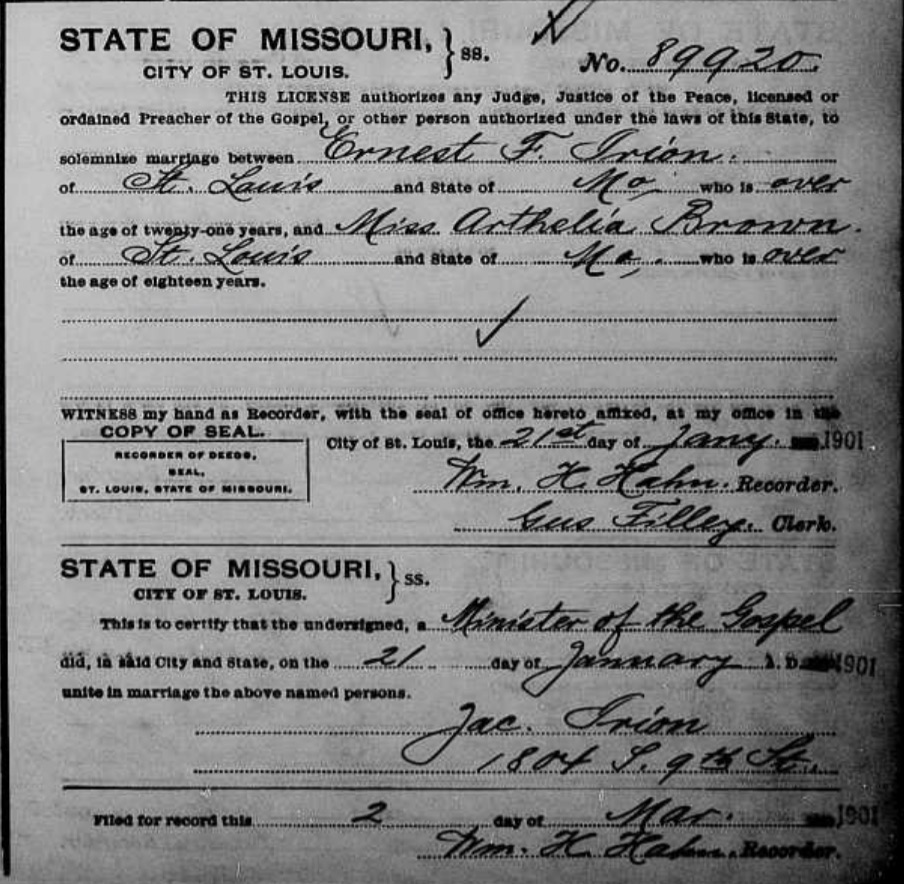 STATE OF MISSOURI, } ss.
CITY OF ST. LOUIS.
No. 89920.
THIS LICENSE authorizes any Judge, Justice of the Peace, licensed or
ordained Preacher of the Gospel, or other person authorized under the laws of this State, to
solemnize marriage between Ernest F. Irion.
of St. Louis and State of Mo, who is over
the age of twenty-one years, and Miss Arthelia Brown.
of St. Louis and State of Mo,. who is over
the age of eighteen years.
WITNESS my hand as Recorder, with the seal of office hereto affixed, at my office in the
COPY OF SEAL.
RECORDER OF DEEDS,
SEAL,
ST. LOUIS, STATE OF MISSOURI.
City of St. Louis, the 21st day of Jany. 1901
Wm. H. Hahn. Recorder.
Gus Filley. Clerk.
STATE OF MISSOURI, } ss.
CITY OF ST. LOUIS.
This is to certify that the undersigned, a Minister of the Gospel
did, in said City and State, on the 21 day of January A. D. 1901
unite in marriage the above named persons.
Jac. Irion
1804 S. 9th St.
Filed for record this 2 day of Mar. 1901
Wm. H. Hahn, Recorder.